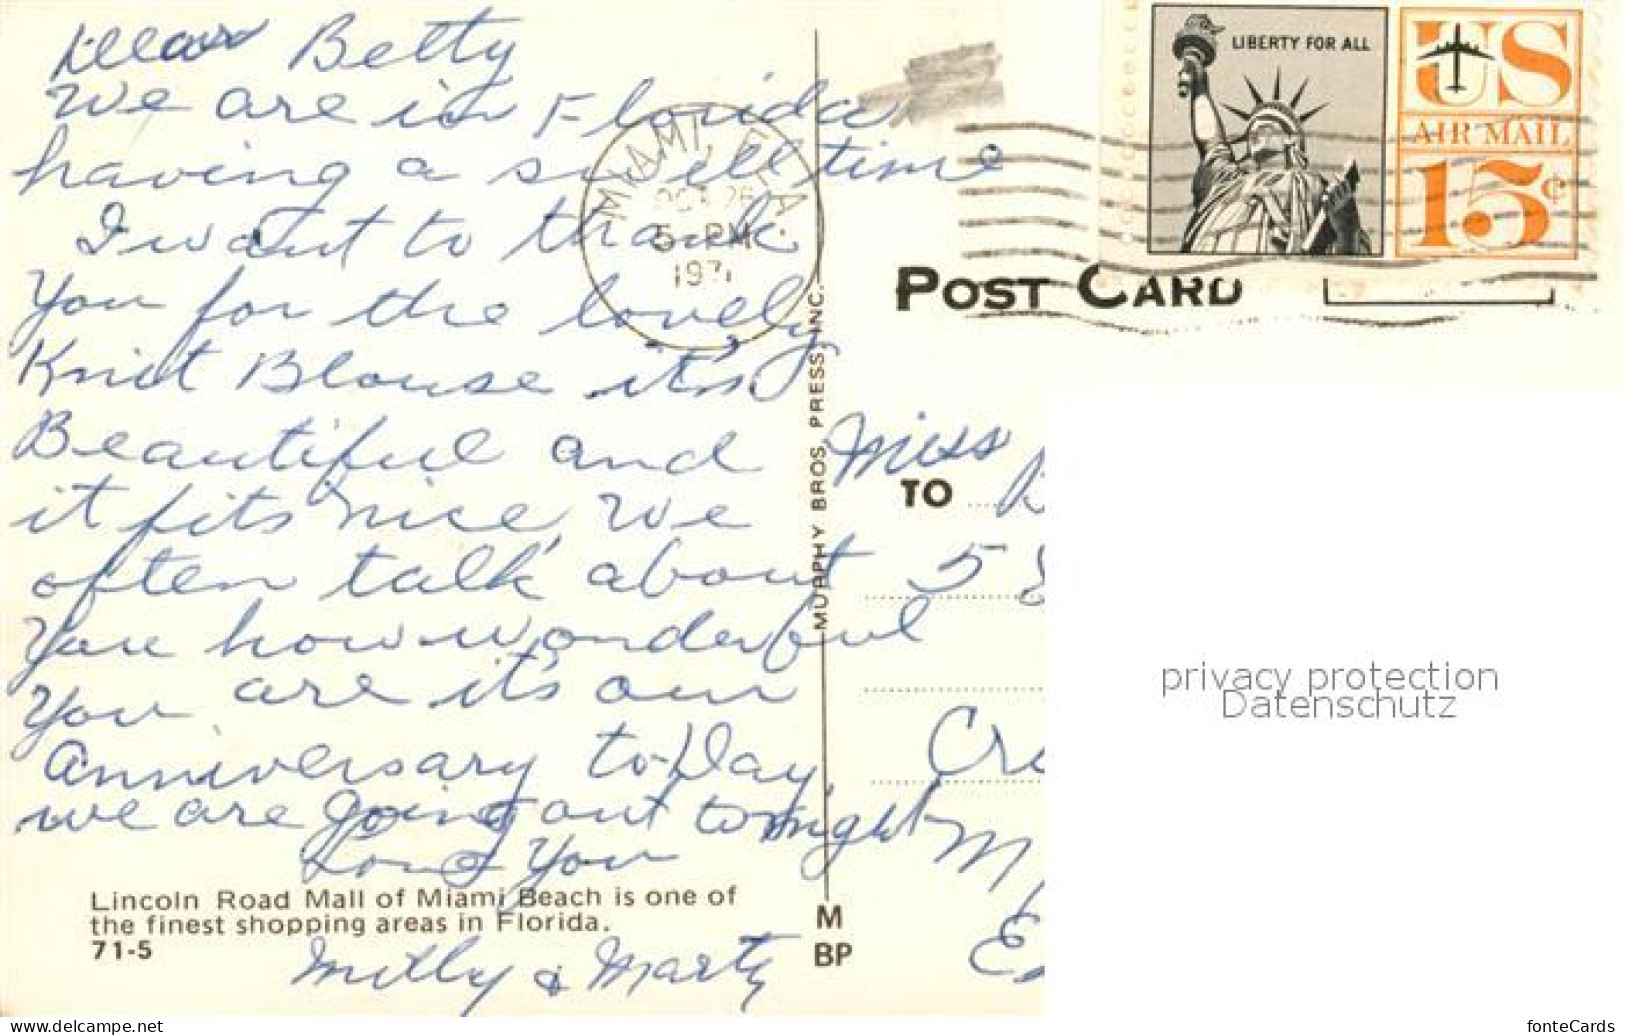 Dear Betty
We are in Florida
having a swell time
I want to thank
You for the lovely
Knit Blouse it's
Beautiful and
it fits nice, We
often talk about
You how wonderful
You are it's our
Anniversary to-Day,
we are going out tonight
Love You
Milly & Marty
Lincoln Road Mall of Miami Beach is one of
the finest shopping areas in Florida.
71-5
MURPHY BROS. PRESS, INC.
M
BP
MIAMI, FLA.
OCT 26
5 PM
LIBERTY FOR ALL
US
AIR MAIL
15¢
POST CARD
Miss
TO
5
privacy protection
Datenschutz
www.delcampe.net
fonteCards